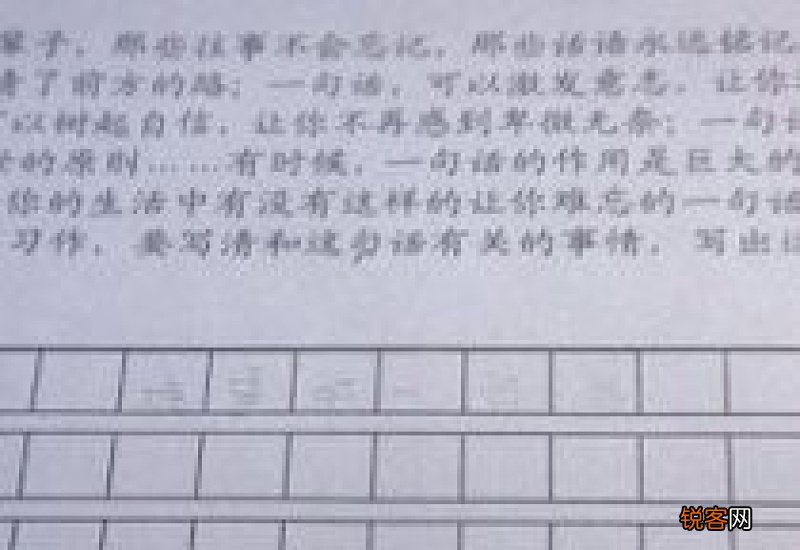 辈子，那些往事不会忘记，那些话语永远铭记
清了前方的路；一句话，可以激发意志，让你
以树起自信，让你不再感到卑微无奈；一句话
的原则……有时候，一句话的作用是巨大的
你的生活中有没有这样的让你难忘的一句话
习作，要写清和这句话有关的事情，写出
锐客网